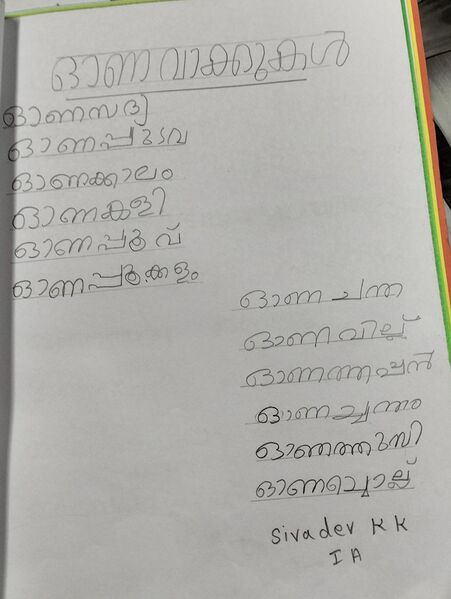 ഓണ വാക്കുകൾ
ഓണസദ്യ
ഓണപ്പുടവ
ഓണക്കാലം
ഓണകളി
ഓണപ്പൂവ്
ഓണപ്പൂക്കളം
ഓണ ചന്ത
ഓണവില്ല്
ഓണത്തപ്പൻ
ഓണച്ചന്തം
ഓണത്തുമ്പി
ഓണച്ചൊല്ല്
Sivadev K K
I A